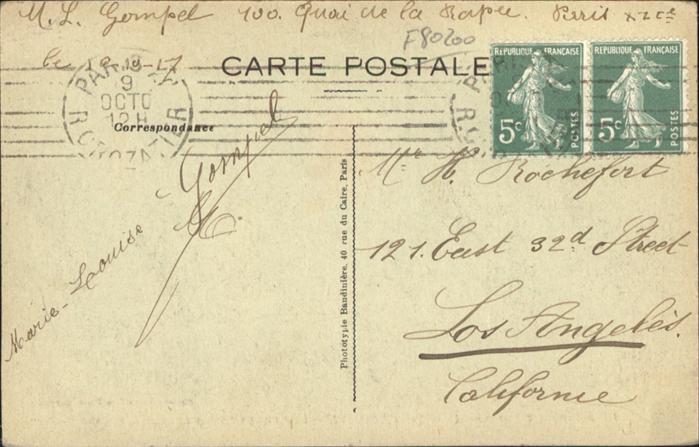 M. L. Gompel 100. Quai de la Rapée. Paris XIIe
F80200
CARTE POSTALE
PARIS
9
OCTO
12H
Correspondance
RÉPUBLIQUE FRANÇAISE
5c
POSTES
RÉPUBLIQUE FRANÇAISE
5c
POSTES
Gompel
Marie-Louise
Phototypie Baudinière, 40 rue du Caire, Paris
Mr H. Rochefort
121. East 32d Street
Los Angelès.
Californie